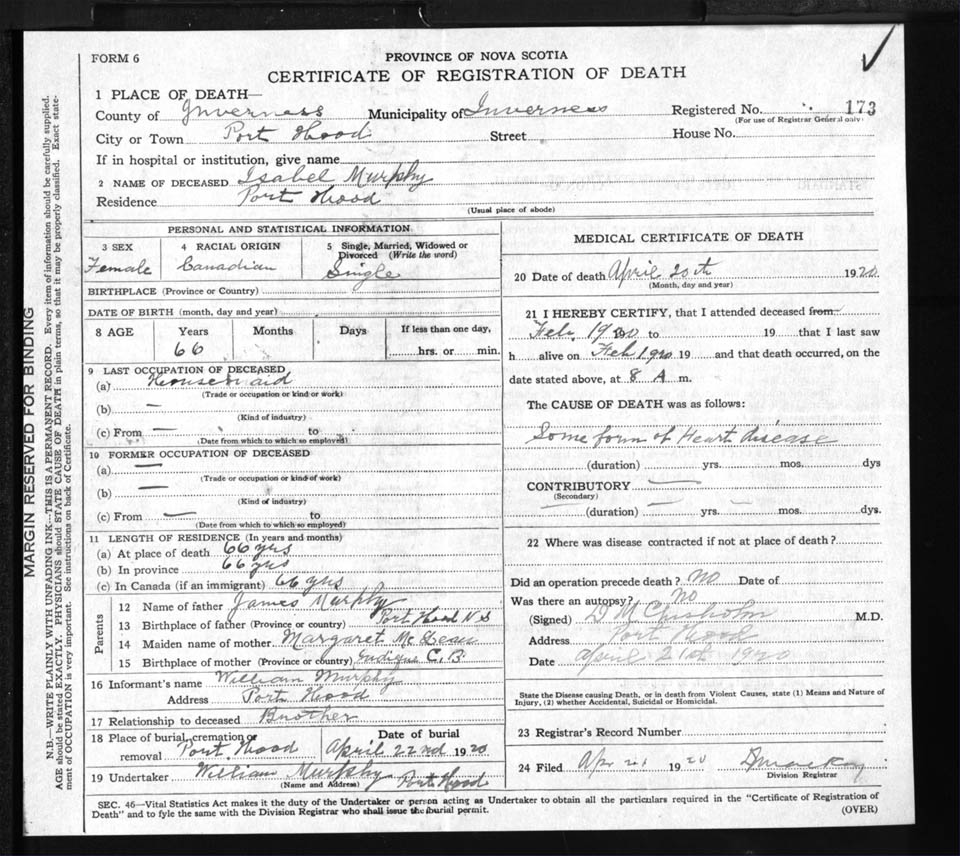 FORM 6
PROVINCE OF NOVA SCOTIA
CERTIFICATE OF REGISTRATION OF DEATH
1 PLACE OF DEATH—
County of Inverness Municipality of Inverness Registered No. 173
(For use of Registrar General only)
City or Town Port Hood Street House No.
If in hospital or institution, give name
2 NAME OF DECEASED Isabel Murphy
Residence Port Hood
(Usual place of abode)
PERSONAL AND STATISTICAL INFORMATION
3 SEX 4 RACIAL ORIGIN 5 Single, Married, Widowed or Divorced (Write the word)
Female Canadian Single
BIRTHPLACE (Province or Country)
DATE OF BIRTH (month, day and year)
8 AGE Years Months Days If less than one day,
66 hrs. or min.
9 LAST OCCUPATION OF DECEASED
(a) Housemaid
(Trade or occupation or kind or work)
(b) —
(Kind of industry)
(c) From — to
(Date from which to which so employed)
10 FORMER OCCUPATION OF DECEASED
(a) —
(Trade or occupation or kind of work)
(b) —
(Kind of industry)
(c) From — to
(Date from which to which so employed)
11 LENGTH OF RESIDENCE (In years and months)
(a) At place of death 66 yrs
(b) In province 66 yrs
(c) In Canada (if an immigrant) 66 yrs
Parents
12 Name of father James Murphy
13 Birthplace of father (Province or country) Port Hood N S
14 Maiden name of mother Margaret McLean
15 Birthplace of mother (Province or country) C. B.
16 Informant's name William Murphy
Address Port Hood
17 Relationship to deceased Brother
18 Place of burial, cremation or removal Port Hood
Date of burial
April 22nd 1920
19 Undertaker William Murphy Port Hood
(Name and Address)
MEDICAL CERTIFICATE OF DEATH
20 Date of death April 20th 1920
(Month, day and year)
21 I HEREBY CERTIFY, that I attended deceased from
Feb. 1920 to 19 that I last saw
h alive on Feb 1920 19 and that death occurred, on the
date stated above, at 8 A m.
The CAUSE OF DEATH was as follows:
Some form of Heart disease
(duration) yrs. mos. dys
CONTRIBUTORY —
(Secondary)
(duration) — yrs. — mos. — dys.
22 Where was disease contracted if not at place of death?
Did an operation precede death? No Date of
Was there an autopsy? No
(Signed) D M Chisholm M.D.
Address Port Hood
Date April 21st 1920
State the Disease causing Death, or in death from Violent Causes, state (1) Means and Nature of
Injury, (2) whether Accidental, Suicidal or Homicidal.
23 Registrar's Record Number
24 Filed Apr 21 1920
Division Registrar
SEC. 46—Vital Statistics Act makes it the duty of the Undertaker or person acting as Undertaker to obtain all the particulars required in the "Certificate of Registration of
Death" and to fyle the same with the Division Registrar who shall issue the burial permit. (OVER)
MARGIN RESERVED FOR BINDING
N.B.—WRITE PLAINLY WITH UNFADING INK—THIS IS A PERMANENT RECORD. Every item of information should be carefully supplied.
AGE should be stated EXACTLY. PHYSICIANS should STATE CAUSE OF DEATH in plain terms, so that it may be properly classified. Exact state-
ment of OCCUPATION is very important. See instructions on back of Certificate.